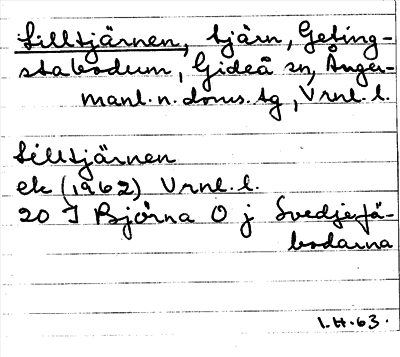 Lilltjärnen, tjärn, Geting-
stabodum, Gideå sn, Ånger-
manl. n. doms. tg, Vrnl. l.
Lilltjärnen
ek (1962) Vrnl. l.
20 I Björna O j Svedjefä-
bodarna
I.H.63.